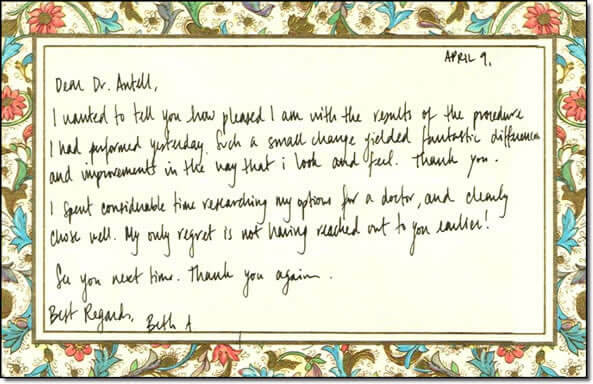 APRIL 9,
Dear Dr. Antell,
I wanted to tell you how pleased I am with the results of the procedure
I had performed yesterday. Such a small change yielded fantastic differences
and improvements in the way that i look and feel. Thank you.
I spent considerable time researching my options for a doctor, and clearly
chose well. My only regret is not having reached out to you earlier!
See you next time. Thank you again.
Best Regards,
Beth A